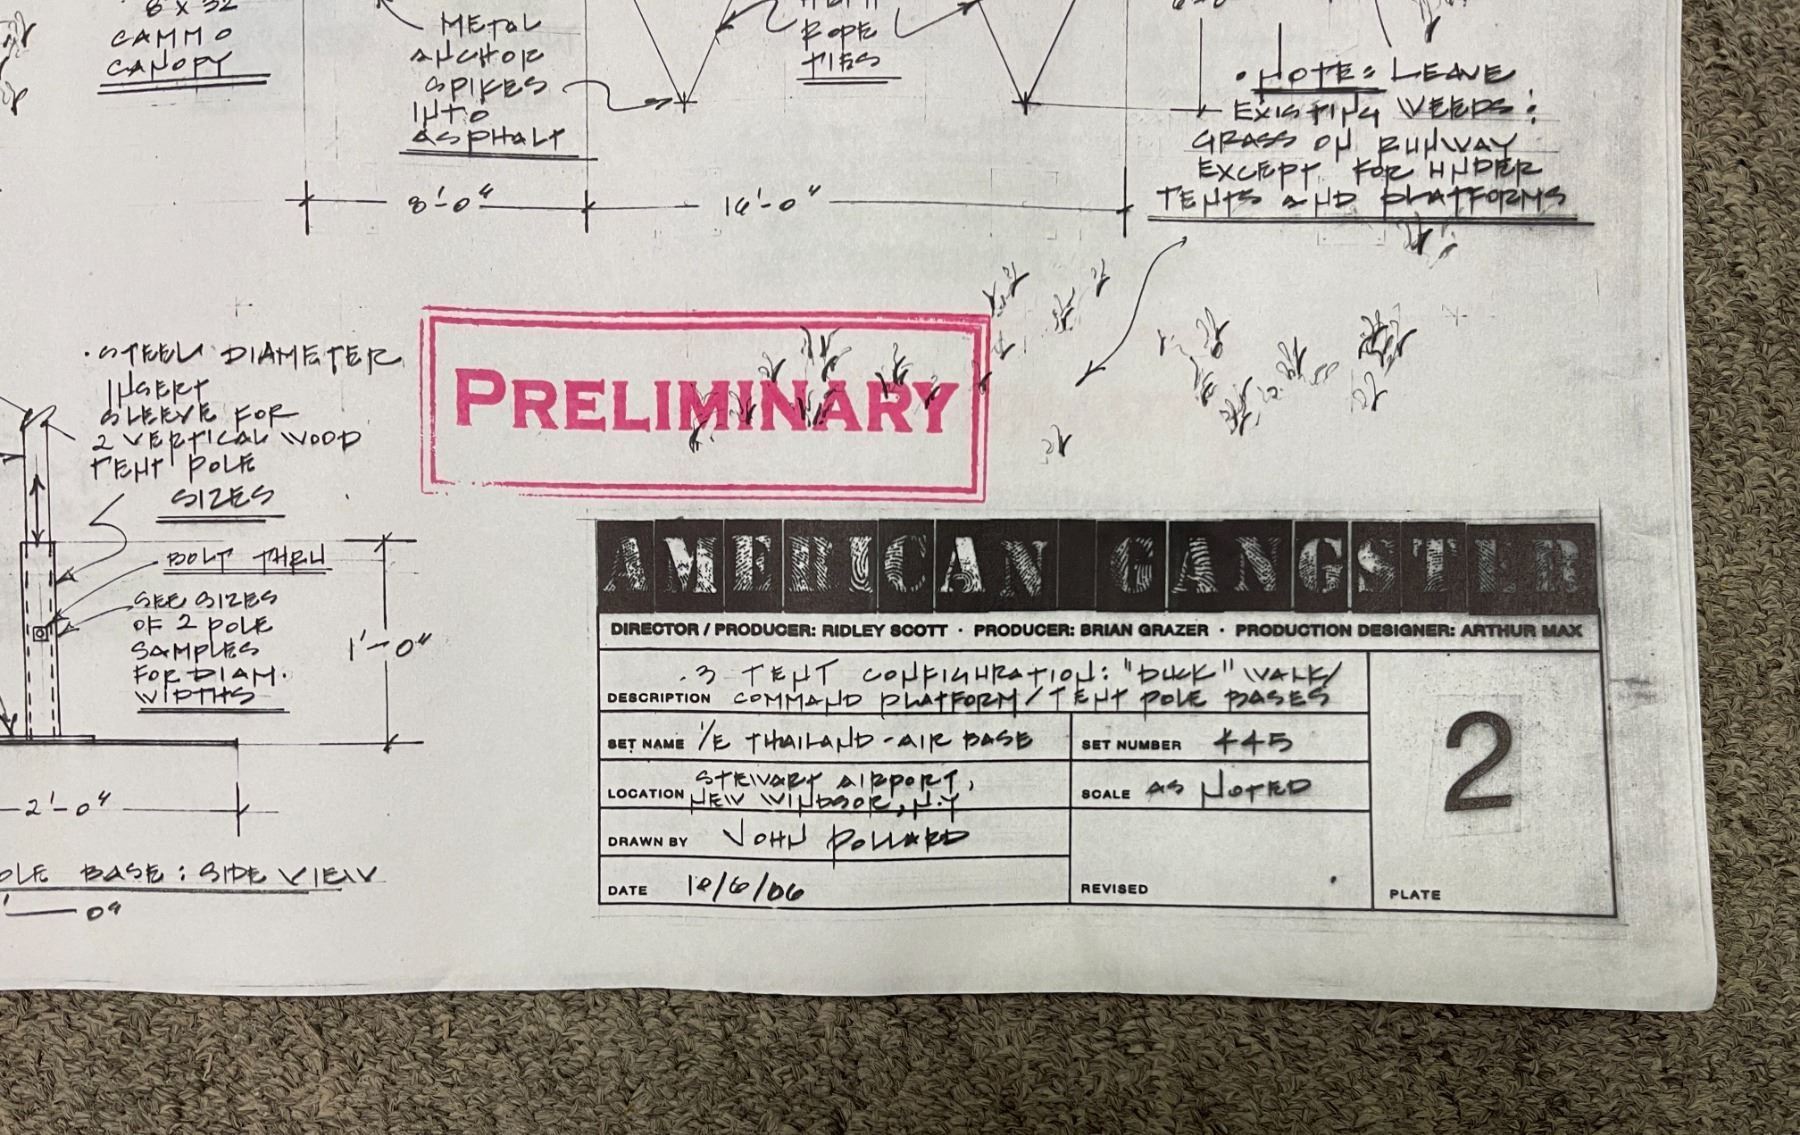 8 X 32
CAMMO
CANOPY
METAL
ANCHOR
SPIKES
INTO
ASPHALT
ROPE
TIES
• NOTE: LEAVE
EXISTING WEEDS:
GRASS ON RUNWAY
EXCEPT FOR UNDER
TENTS AND PLATFORMS
8'-0"
16'-0"
• STEEL DIAMETER
INSERT
SLEEVE FOR
2 VERTICAL WOOD
TENT POLE
SIZES
BOLT THRU
SEE SIZES
OF 2 POLE
SAMPLES
FOR DIAM.
WIDTHS
1'-0"
2'-0"
BASE: SIDE VIEW
PRELIMINARY
AMERICAN GANGSTER
DIRECTOR / PRODUCER: RIDLEY SCOTT · PRODUCER: BRIAN GRAZER · PRODUCTION DESIGNER: ARTHUR MAX
DESCRIPTION .3 TENT CONFIGURATION: "DUCK" WALK/
COMMAND PLATFORM/TENT POLE BASES
SET NAME I/E THAILAND-AIR BASE
SET NUMBER 445
LOCATION STEWART AIRPORT,
NEW WINDSOR, N.Y
SCALE AS NOTED
DRAWN BY JOHN POLLARD
DATE 10/6/06
REVISED
PLATE
2